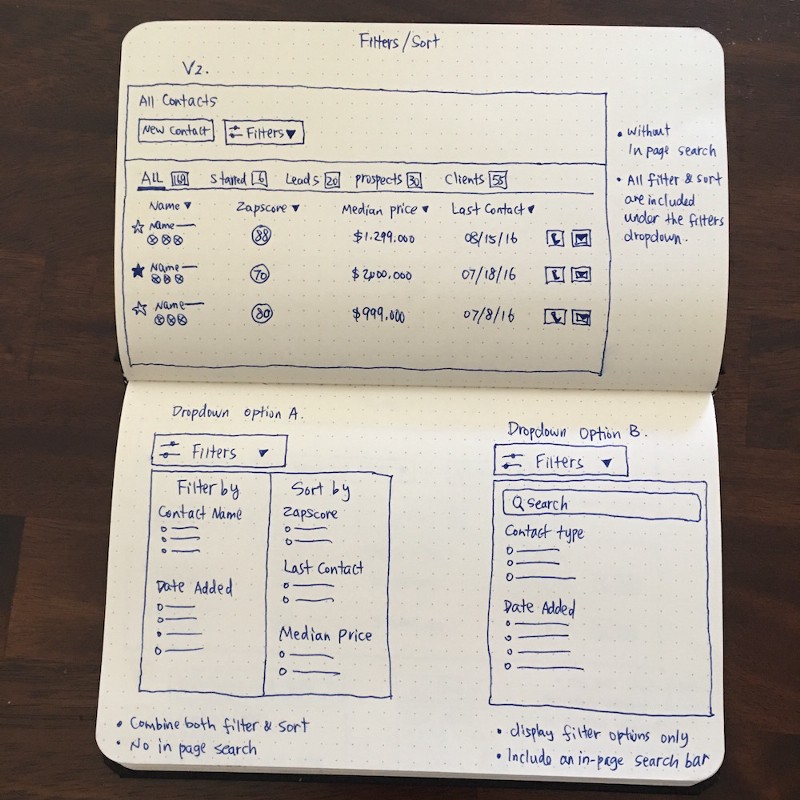 Filters/Sort
V2.
All Contacts
New Contact Filters
• without
In page search
• All filter & sort
are included
under the filters
dropdown.
ALL 169 Starred 6 Leads 20 prospects 30 Clients 55
Name Zapscore Median price Last Contact
Name 88 $1.299.000 08/15/16
Name 70 $2,000.000 07/18/16
Name 80 $999.000 07/8/16
Dropdown option A.
Filters
Filter by
Contact Name
Date Added
Sort by
Zapscore
Last Contact
Median Price
• Combine both filter & sort
• No in page search
Dropdown Option B.
Filters
Search
Contact type
Date Added
• display filter options only
• Include an in-page search bar